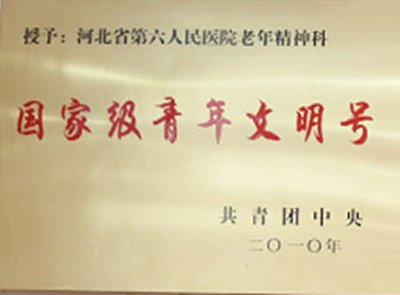 授予：河北省第六人民医院老年精神科
国家级青年文明号
共青团中央
二〇一〇年